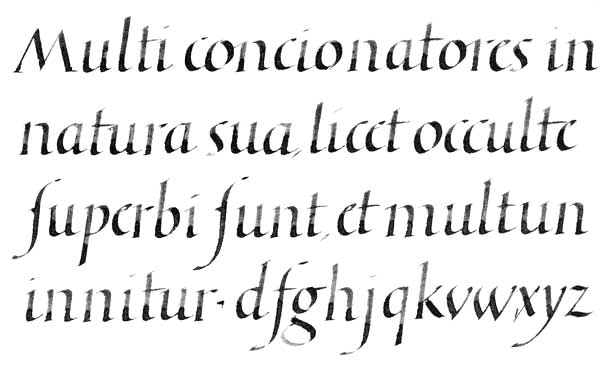 Multi concionatores in
natura sua, licet occulte
ſuperbi ſunt, et multun
innitur. dfghjqkvwxyz